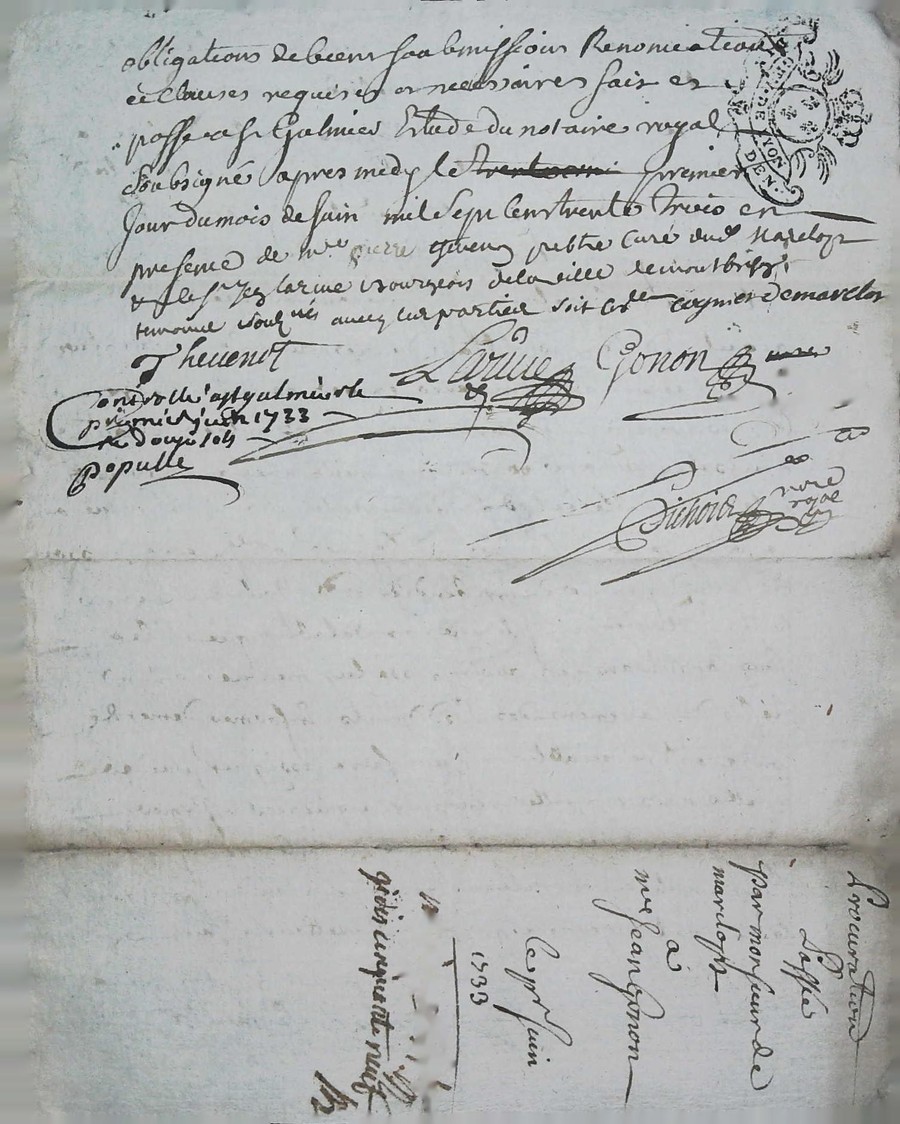 obligations de biens soubmissions Renonciations
et Clauses requises et necessaires fait et
passé a St Galmier Etude du notaire royal
Soubsigné apres midy le premier
Jour du mois de Juin mil Sept Cens trente Trois en
presence de mre pierre prebtre Curé dud Marclopt
& de Sr Larue bourgeois de la ville de montbrison
avecq les parties Soit de Marclop
Thevenot
Larüe
Gonon
Controllé a St galmier le
premier juin 1733
Re douze sols
Populle
Pichoir nore
royal
Procuration
Passée
par monsieur de
marclopt
a
mre Jean Gonon
le pr Juin
1733
cinquante neuf